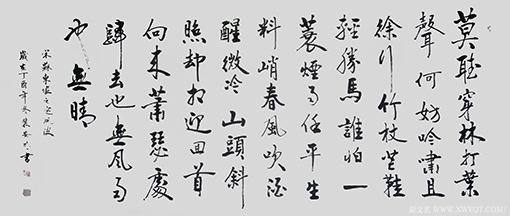 莫聽穿林打葉
聲何妨吟嘯且
徐行竹杖芒鞋
輕勝馬誰怕一
蓑煙雨任平生
料峭春風吹酒
醒微冷山頭斜
照却相迎回首
向來蕭瑟處
歸去也無風雨
也無晴
宋蘇東坡之定風波
歲在丁酉年冬書